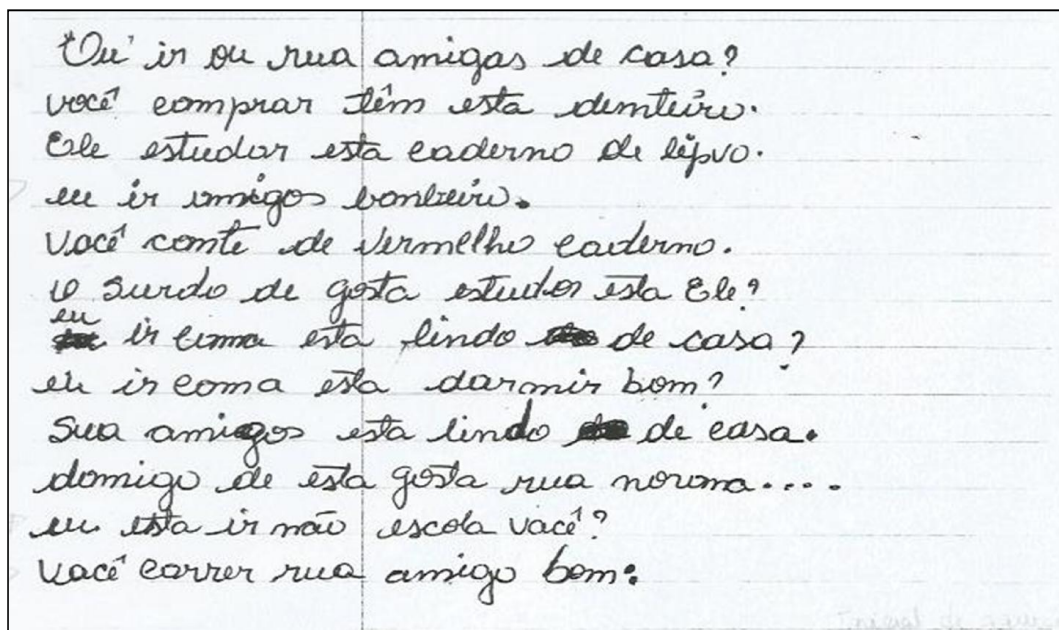 Ou ir ou rua amigas de casa?
você comprar têm esta dinteiro.
Ele estudar esta caderno de
eu ir amigos bombeiro.
Você comte de vermelho caderno.
O Surdo de gosta estudos esta Ele?
eu ir uma esta lindo de casa?
eu ir coma esta darmir bom?
Sua amigos esta lindo de casa.
domigo de esta gosta rua noroma....
eu esta ir não escola você?
Você correr rua amigo bom.